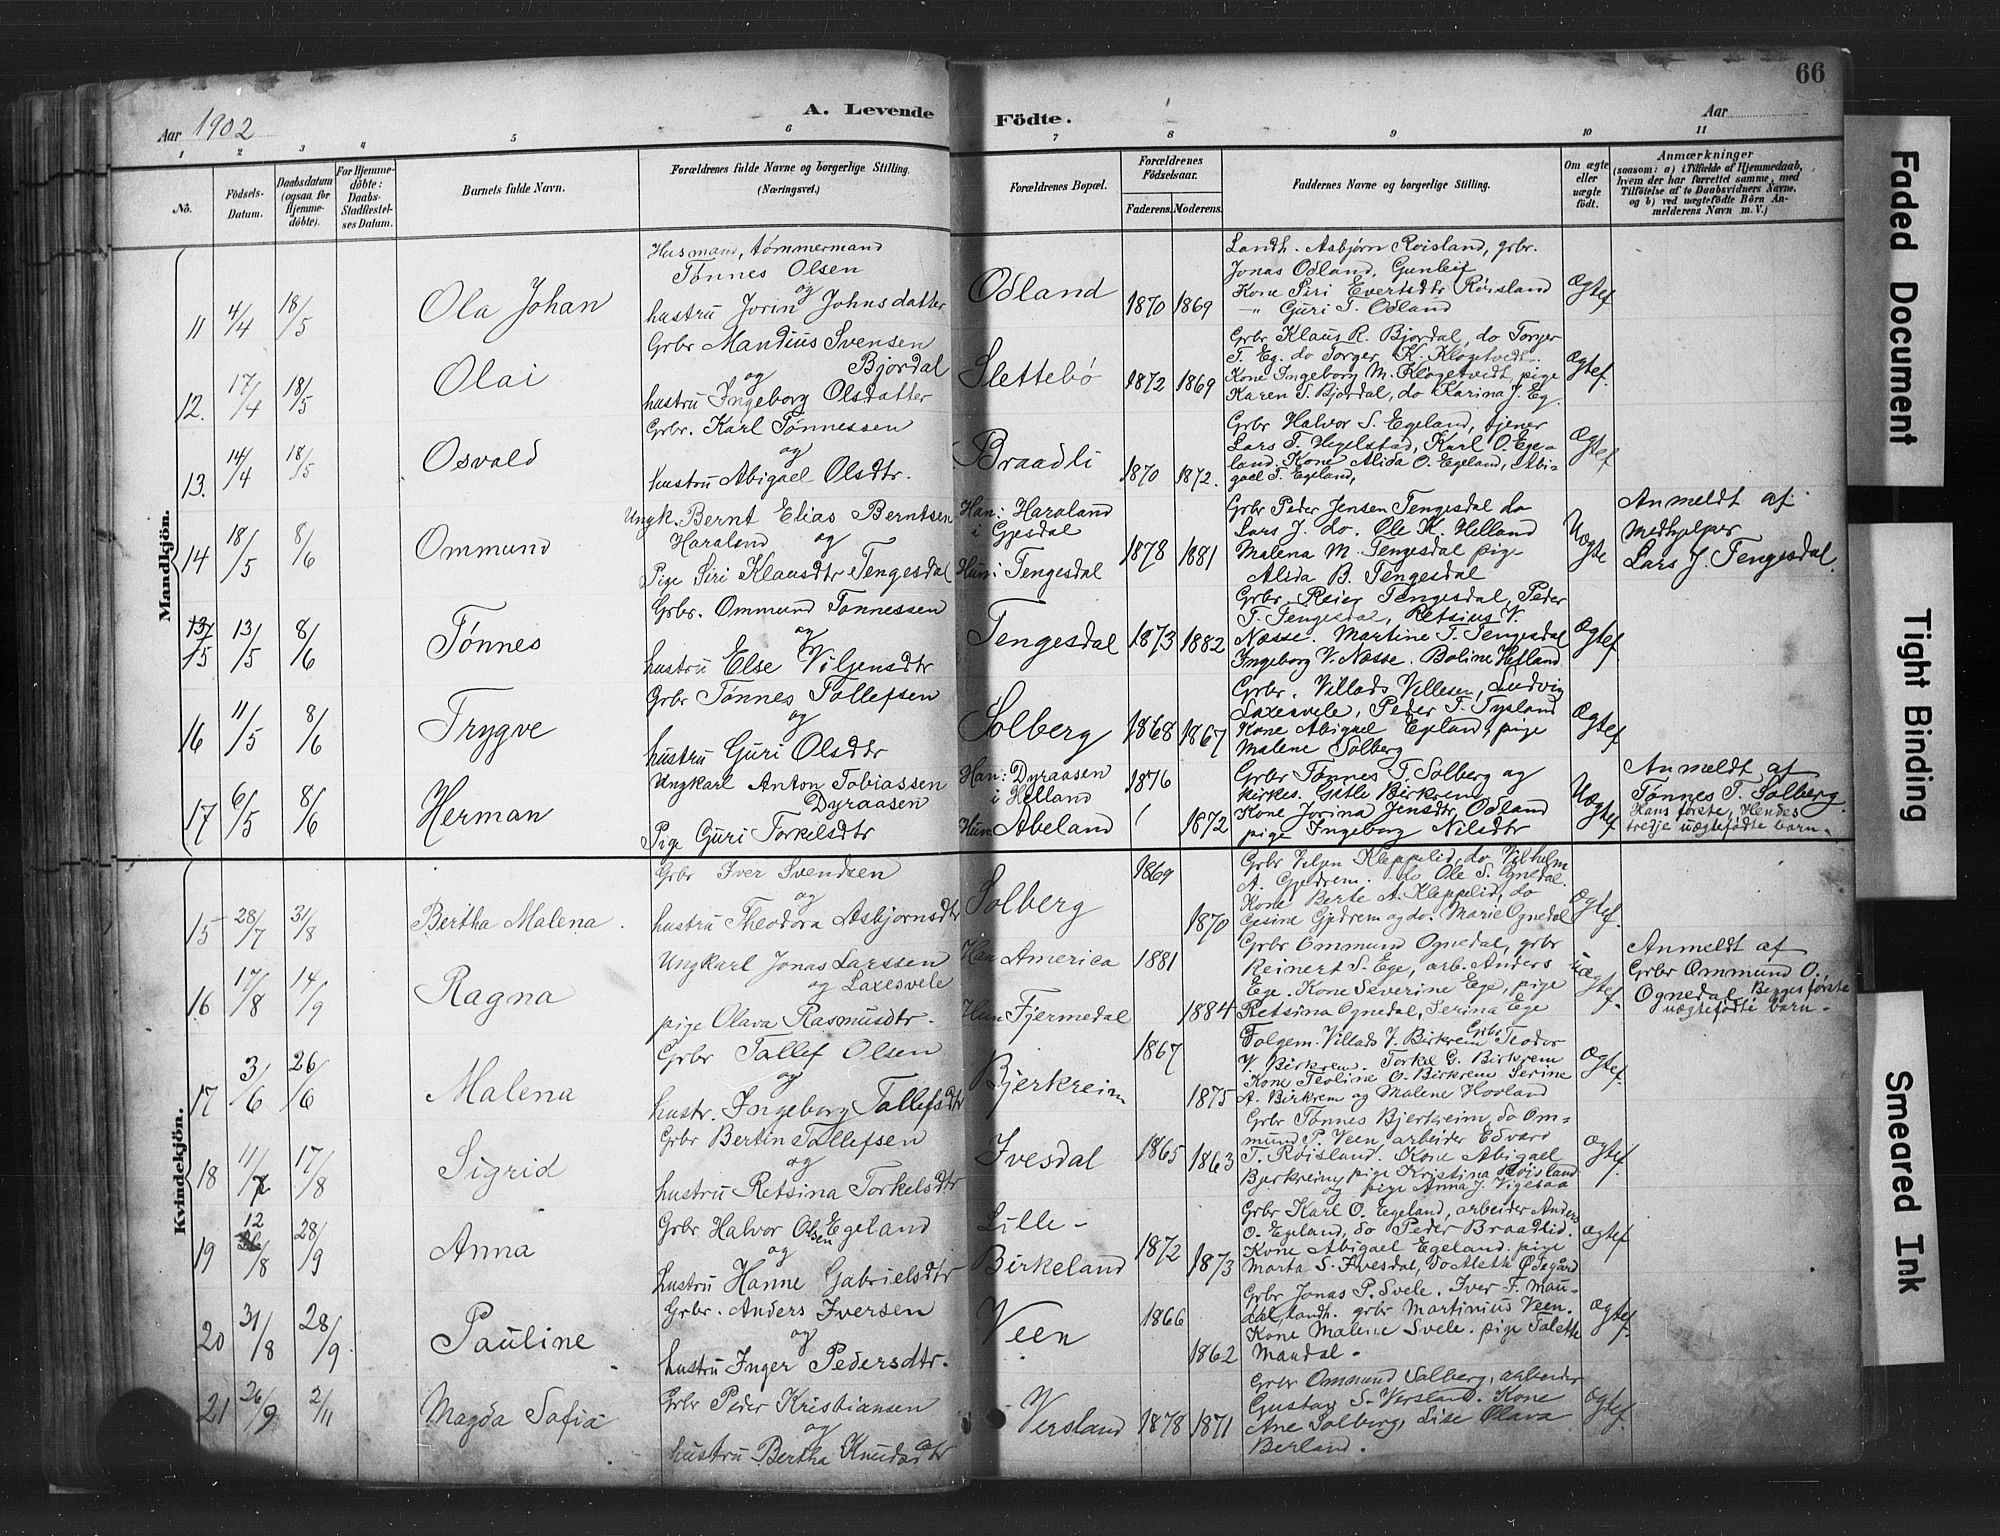 66
A. Levende Födte.
Aar 1902
Aar
1 2 3 4 5 6 7 8 9 10 11
No.
Födsels-Datum.
Daabsdatum (ogsaa for Hjemmedöbte).
For Hjemmedöbte: Daabs-Stadfæstelses Datum.
Barnets fulde Navn.
Forældrenes fulde Navne og borgerlige Stilling. (Næringsvei.)
Forældrenes Bopæl.
Forældrenes Födselsaar.
Faderens. Moderens.
Faddernes Navne og borgerlige Stilling.
Om ægte eller uægte födt.
Anmærkninger
(saasom: a) i Tilfælde af Hjemmedaab, hvem der har forrettet samme, med Tilföielse af to Daabsvidners Navne, og b) ved uægtefödte Börn Anmelderens Navn m. V.)
Mandkjön.
11 4/4 18/5 Ola Johan
Husmand, tømmermand
Tønnes Olsen
og
hustru Jorin Johnsdatter
Odland 1870 1869
Landh. Asbjørn Røisland, grbr.
Jonas Odland, Gunleif
Kone Siri Evertsdtr Røisland
" Guri T. Odland
Ægtef
12. 17/4 18/5 Olai
Grbr Mandius Svensen
Bjordal
og
hustru Ingeborg Olsdatter
Slettebø 1872 1869
Grbr Klaus R. Bjordal, do Torger
T. Eg. do Torger K. Klogetvedt.
Kone Ingeborg M. Klogetvedt, pige
Karen S. Bjordal, do Karina J. Eg.
Ægtef.
13. 14/4 18/5 Osvald
Grbr. Karl Tønnessen
og
hustru Abigael Olsdtr.
Braadli 1870 1872.
Grbr Halvor S. Egeland, tjener
Lars T. Hegelstad, Karl O. Ege-
land, Kone Alida O. Egeland, Abi-
gael T. Egeland,
Ægtef
14 18/5 8/6 Ommund
Ungk. Bernt Elias Berntsen
Haraland og
Pige Siri Klausdtr Tengesdal
Han: Haraland
i Gjesdal
Hun: Tengesdal
1878 1881
Grbr Peder Jensen Tengesdal do
Lars J. do. Ole K. Helland
Malena M. Tengesdal pige
Alida B. Tengesdal
Uægte
Anmeldt af
Medhjelper
Lars J. Tengesdal.
13/5 8/6 Tønnes
Grbr. Ommund Tønnessen
og
hustru Else Viljensdtr
Tengesdal 1873 1882
Grbr. Reier Tengesdal, Peder
T. Tengesdal, Retsius V.
Næsse. Martine T. Tengesdal
Ingeborg V. Næsse. Boline Helland
Ægtef.
16 11/5 8/6 Trygve
Grbr Tønnes Tollefsen
og
hustru Guri Olsdtr
Solberg 1868 1867
Grbr. Villads Villesen, Ludvig
Laxesvele, Peder T. Tysland
Kone Abigael Egeland, pige
Malene Solberg
Ægtef.
17 6/5 8/6 Herman
Ungkarl Anton Tobiassen
Dyraasen
Pige Guri Torkelsdtr
Han: Dyraasen
i Helland
Hun Abeland
1876
1872
Grbr Tønnes T. Solberg og
kirkes. Gitle Birkrem
Kone Jorina Jensdtr Odland
pige Ingeborg Nilsdtr
Uægtef.
Anmeldt af
Tønnes T. Solberg.
Hans første, Hendes
tredje uægtefødte barn.
Kvindekjön.
15 28/7 31/8 Bertha Malena.
Grbr Iver Svendsen
og
hustru Theodora Asbjørnsdtr
Solberg 1869 1870
Grbr Viljen Kleppelid, do Vilhelm
A. Gjedrem. do Ole S. Ognedal.
Kone Berte A. Kleppelid, do
Gesine Gjedrem og do. Marie Ognedal
Ægtef.
16 17/8 14/9 Ragna
Ungkarl Jonas Larssen
og Laxesvele
pige Olava Rasmusdtr.
Han America
Hun Fjermedal
1881 1884
Grbr Ommund Ognedal, grbr
Reinert S. Ege, arb. Anders
Ege. Kone Severine Ege, pige
Retsina Ognedal, Serina Ege
uægtef.
Anmeldt af
Grbr Ommund O.
Ognedal Begges første
uægtefødte barn.
17 3/6 26/6 Malena
Grbr Tallef Olsen
og
hustr. Ingeborg Tallefsdtr
Bjerkreim 1867 1875
Folgem. Villads V. Birkrem Grbr Teodor
V. Birkrem. Torkel G. Birkrem
Kone Teoline O. Birkrem Serine
A. Birkrem og Malene Hovland
Ægtef.
18 11/7 17/8 Sigrid
Grbr Bertin Tallefsen
og
hustru Retsina Torkelsdtr
Ivesdal 1865 1863
Grbr Tønnes Bjerkreim, do Om-
mund P. Veen, arbeider Edvard
T. Røisland. Kone Abigael
Bjerkreim, pige Kristina Røisland
og pige Anna J. Vigesaa
Ægtef.
19 12/8 28/9 Anna
Grbr Halvor Olsen Egeland
og
hustru Hanne Gabrielsdtr
Lille-
Birkeland
1872 1873
Grbr Karl O. Egeland, arbeider Anders
O. Egeland, do Peder Braadlid.
Kone Abigael Egeland. pige
Marta S. Ivesdal, do Aleth Ødegård
Ægtef
20 31/8 28/9 Pauline
Grbr. Anders Iversen
og
hustru Inger Pedersdtr.
Veen 1866 1862
Grbr Jonas P. Svele. Iver T. Mau-
dal, landh. grbr Martinius Veen.
Kone Malene Svele. pige Talette
Maudal.
Ægtef.
21 26/9 2/11 Magda Sofia
Grbr Peder Kristiansen
og
hustru Bertha Knudsdtr
Versland 1878 1871
Grbr Ommund Solberg, arbeider
Gustav S. Versland. Kone
Ane Solberg, Lise Olava
Berland.
Ægtef.
Faded Document
Tight Binding
Smeared Ink